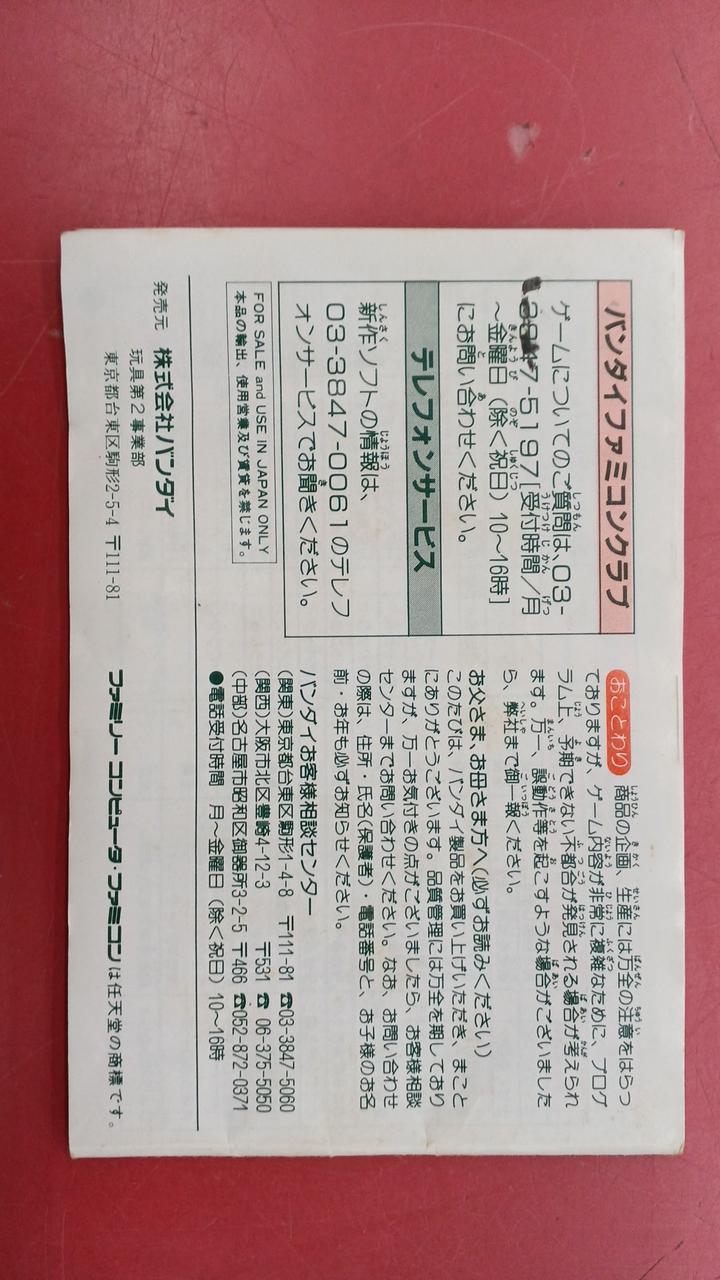 バンダイファミコンクラブ
ゲームについてのご質問は、03-
3847-5197[受付時間／月
～金曜日（除く祝日）10～16時]
にお問い合わせください。
テレフォンサービス
新作ソフトの情報は、
03-3847-0061のテレフ
ォンサービスでお聞きください。
FOR SALE and USE IN JAPAN ONLY
本品の輸出、使用営業及び賃貸を禁じます。
おことわり 商品の企画、生産には万全の注意をはらっ
ておりますが、ゲーム内容が非常に複雑なために、プログ
ラム上、予期できない不都合が発見される場合が考えられ
ます。万一、誤動作等を起こすような場合がございました
ら、弊社まで御一報ください。
お父さま、お母さま方へ(必ずお読みください)
このたびは、バンダイ製品をお買い上げいただき、まこと
にありがとうございます。品質管理には万全を期しており
ますが、万一お気付きの点がございましたら、お客様相談
センターまでお問い合わせください。なお、お問い合わせ
の際は、住所・氏名(保護者)・電話番号と、お子様のお名
前・お年も必ずお知らせください。
バンダイお客様相談センター
(関東)東京都台東区駒形1-4-8 〒111-81 ☎03-3847-5060
(関西)大阪市北区豊崎4-12-3 〒531 ☎ 06-375-5050
(中部)名古屋市昭和区御器所3-2-5 〒466 ☎052-872-0371
●電話受付時間 月～金曜日（除く祝日）10～16時
発売元 株式会社バンダイ
玩具第２事業部
東京都台東区駒形2-5-4 〒111-81
ファミリー コンピュータ・ファミコンは任天堂の商標です。